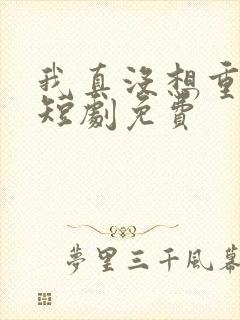 我真沒想重
短劇免費
夢里三千風幕